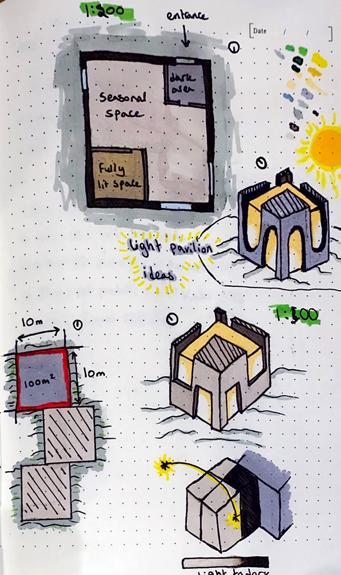 1:200
entrance
Date / /
dark
area
Seasonal
space
Fully
lit space
Light pavilion
ideas
10m
100m²
10m
Light to dark